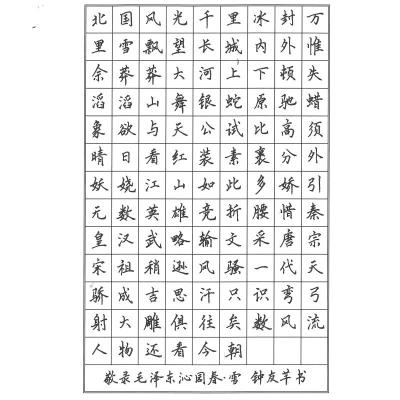 北国风光千里冰封万
里雪飘望长城内外惟
余莽莽大河上下顿失
滔滔山舞银蛇原驰蜡
象欲与天公试比高须
晴日看红装素裹分外
妖娆江山如此多娇引
无数英雄竞折腰惜秦
皇汉武略输文采唐宗
宋祖稍逊风骚一代天
骄成吉思汗只识弯弓
射大雕俱往矣数风流
人物还看今朝
敬录毛泽东沁园春·雪 钟友芊书